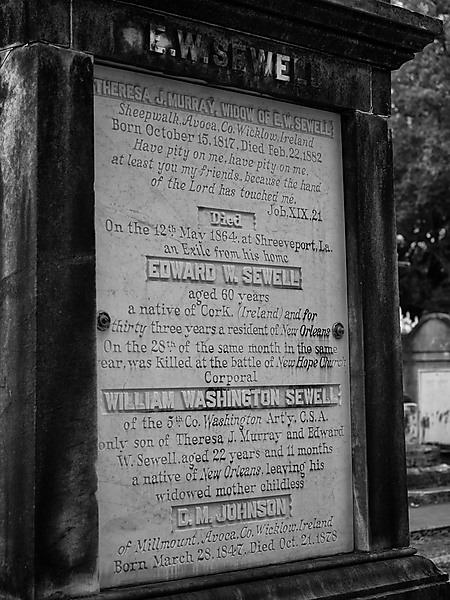 E.W. SEWELL
THERESA J. MURRAY, WIDOW OF E.W. SEWELL;
Sheepwalk, Avoca, Co. Wicklow, Ireland
Born October 15, 1817, Died Feb. 22, 1882
Have pity on me, have pity on me,
at least you my friends, because the hand
of the Lord has touched me.
Job. XIX, 21
Died
On the 12th May 1864, at Shreeveport, La.
an Exile from his home
EDWARD W. SEWELL
aged 60 years
a native of Cork, (Ireland) and for
thirty three years a resident of New Orleans
On the 28th of the same month in the same
year, was Killed at the battle of New Hope Church
Corporal
WILLIAM WASHINGTON SEWELL;
of the 5th Co. Washington Art'y, C.S.A.
only son of Theresa J. Murray and Edward
W. Sewell, aged 22 years and 11 months
a native of New Orleans, leaving his
widowed mother childless
D. M. JOHNSON
of Millmount, Avoca, Co. Wicklow, Ireland
Born March 28, 1847, Died Oct. 21, 1878